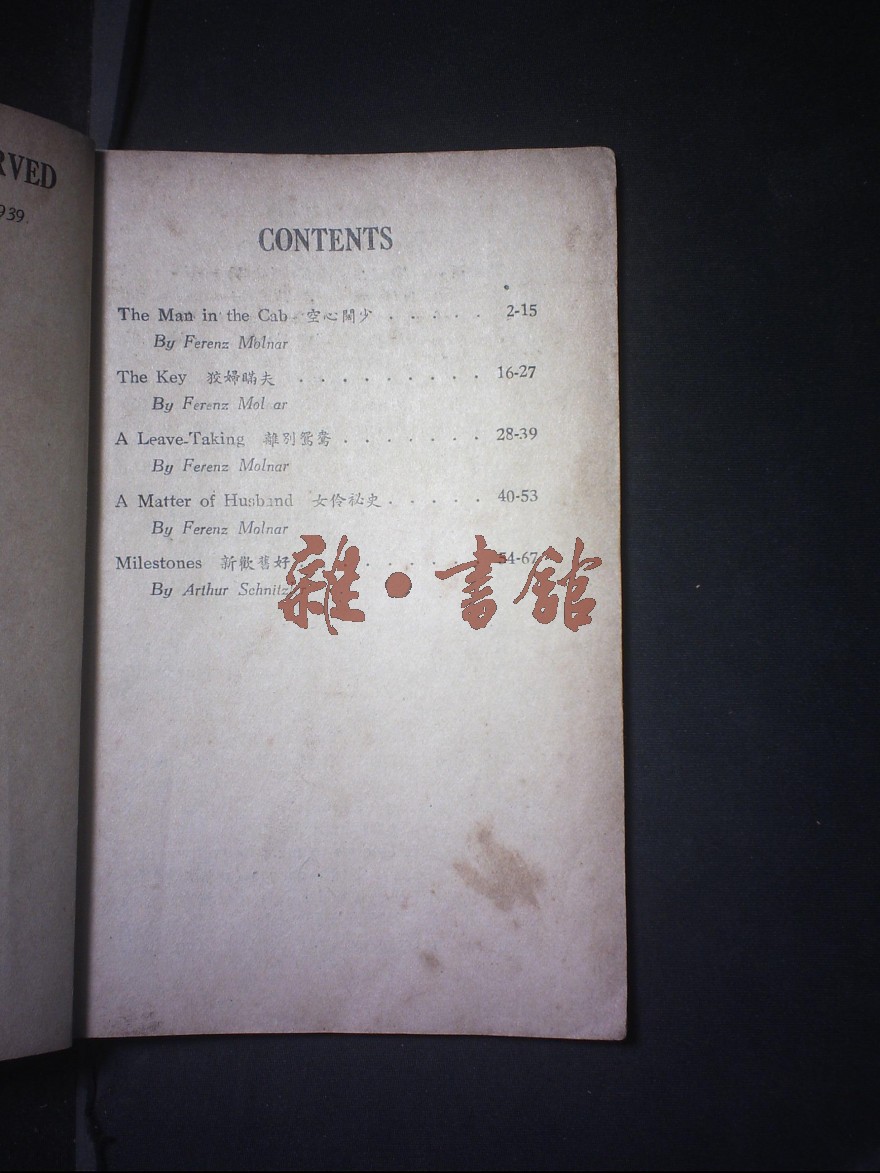 RVED
939
CONTENTS
The Man in the Cab 空心闊少 . . . . . 2-15
By Ferenz Molnar
The Key 狡婦瞞夫 . . . . . . . . . 16-27
By Ferenz Mol ar
A Leave-Taking 離別鴛鴦 . . . . . . . 28-39
By Ferenz Molnar
A Matter of Husband 女伶祕史 . . . . . 40-53
By Ferenz Molnar
Milestones 新歡舊好 . . . 54-67
By Arthur Schnitzler
雜·書館